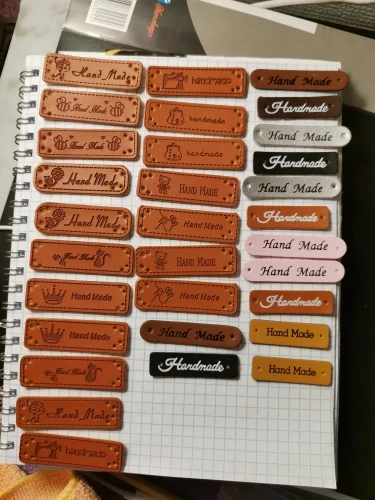 Hand Made
Hand Made
Hand Made
Hand Made
Hand Made
Hand Made
Hand Made
Hand Made
Hand Made
Hand Made
handmade
handmade
handmade
handmade
HAND MADE
HAND MADE
HAND MADE
HAND MADE
Hand Made
Handmade
Hand Made
Handmade
Hand Made
Handmade
Hand Made
Handmade
Hand Made
Hand Made
Handmade
Hand Made
Hand Made